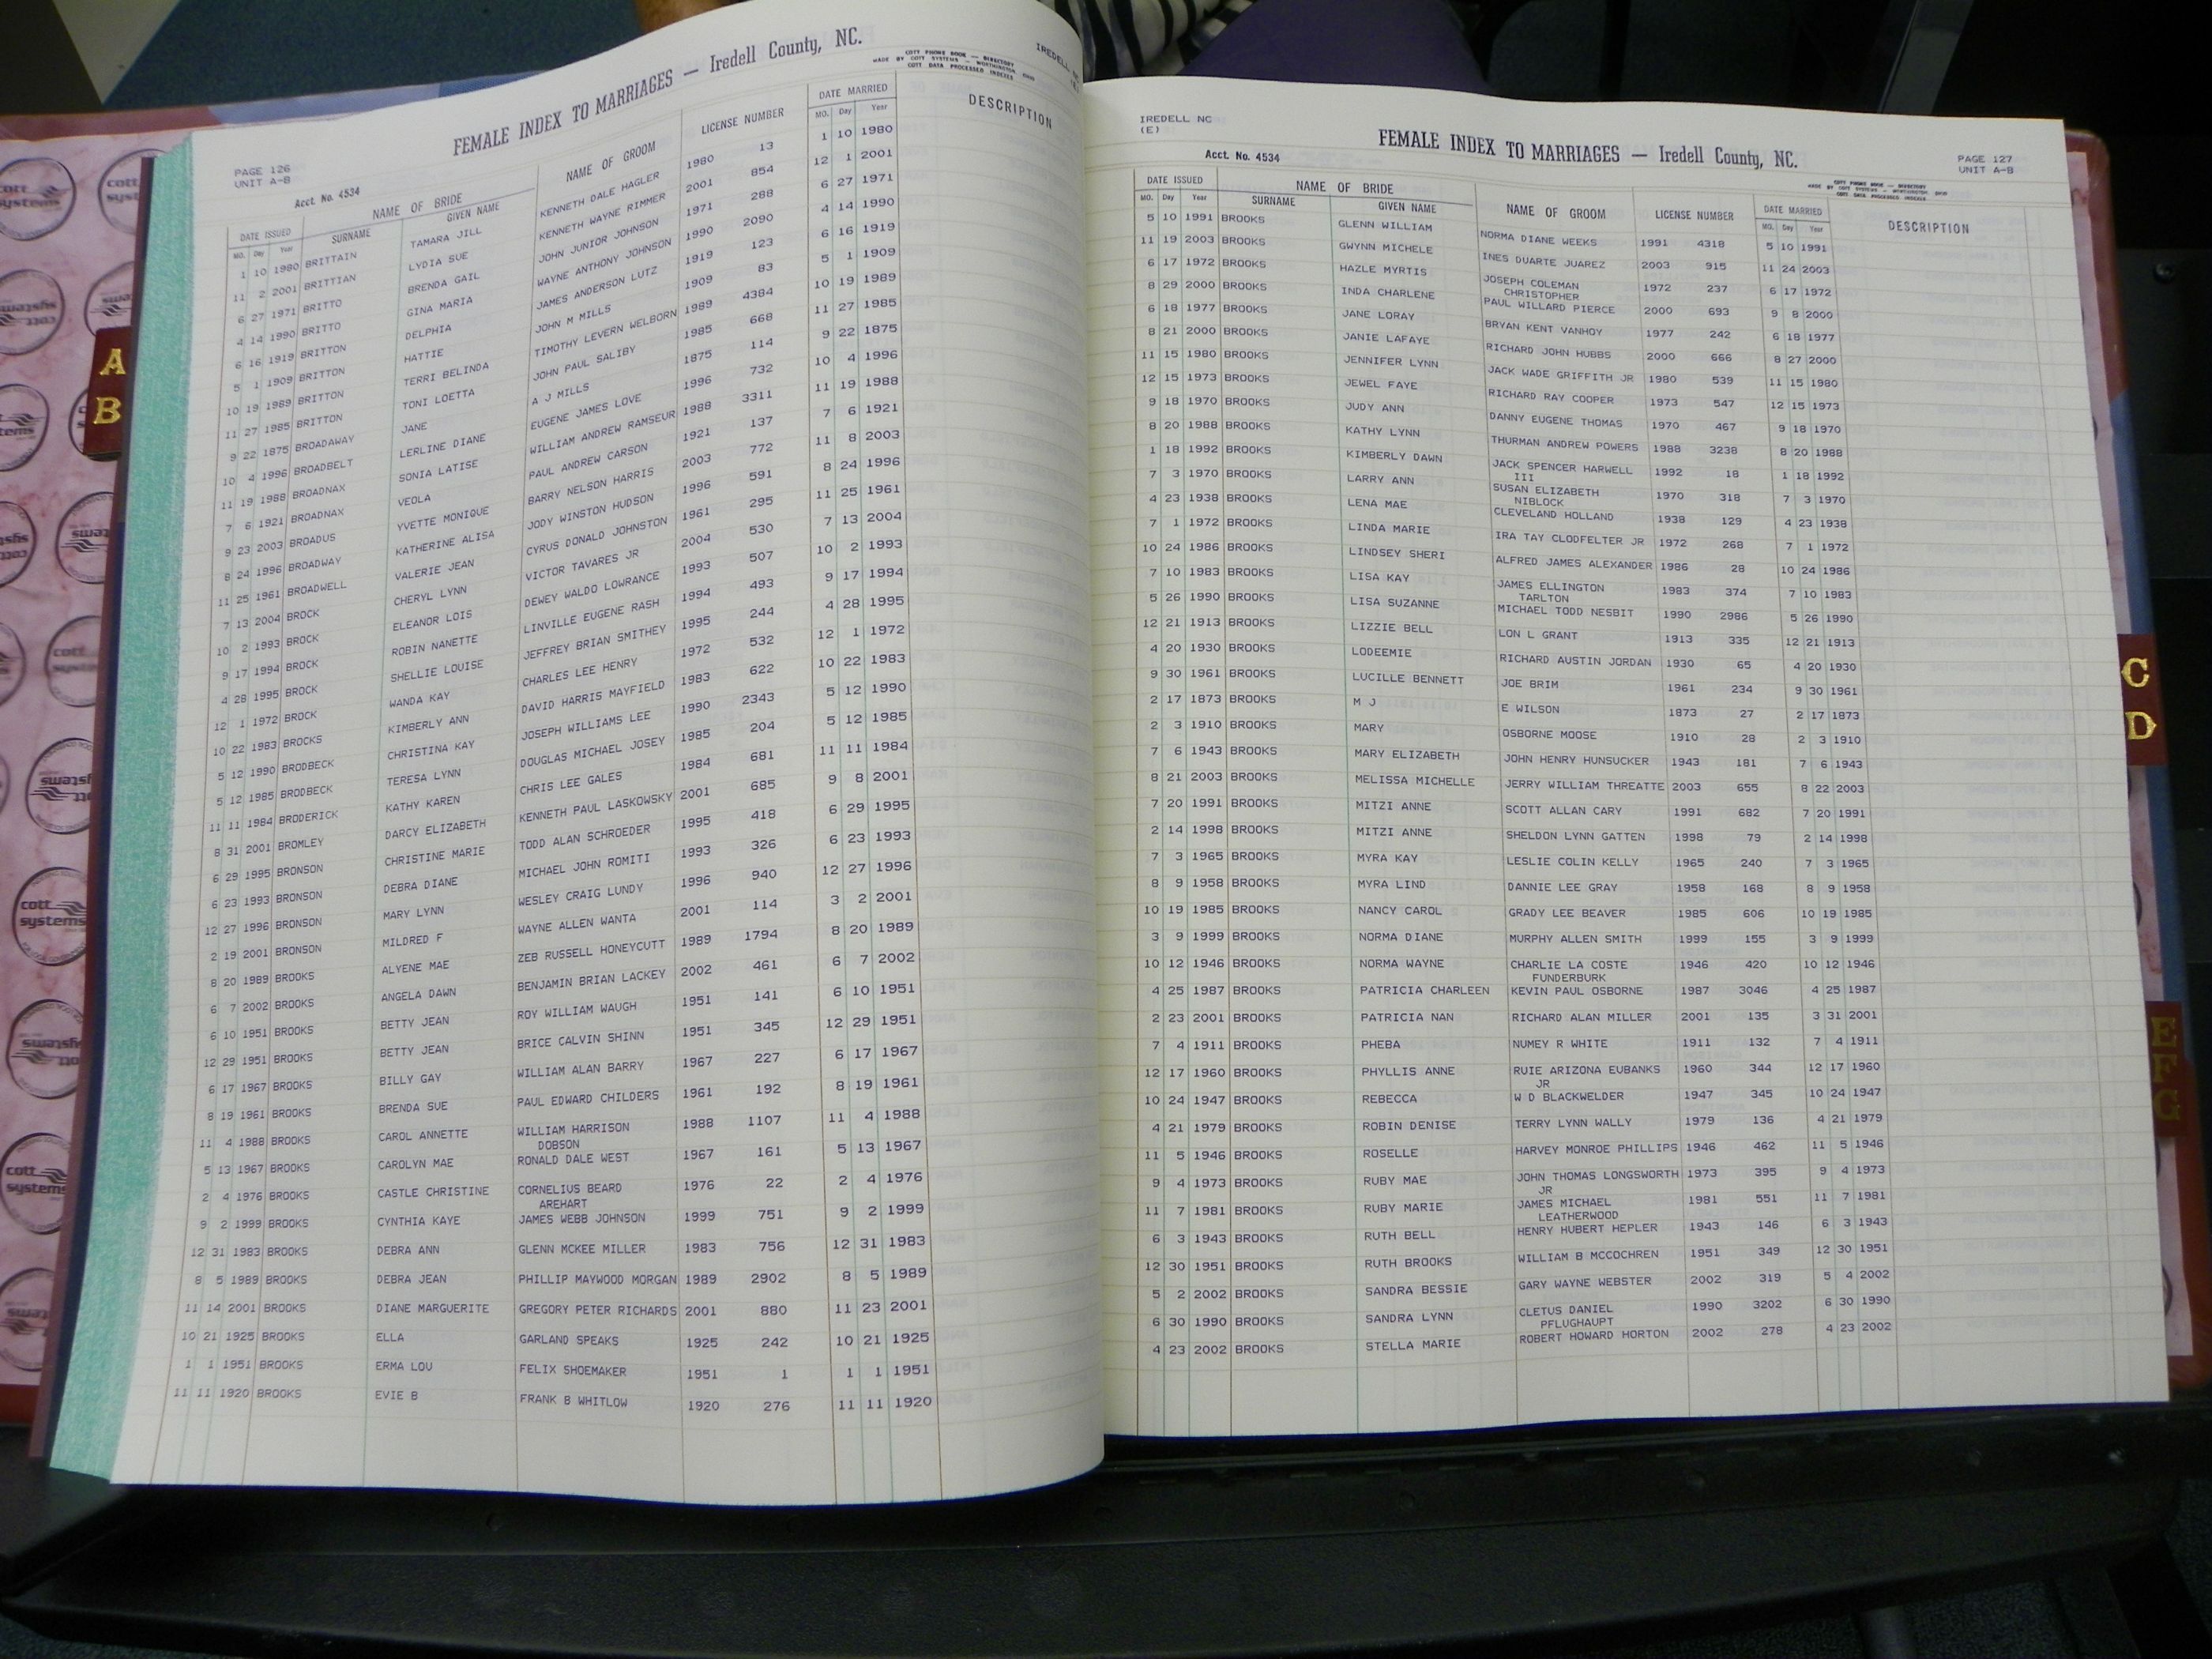 FEMALE INDEX TO MARRIAGES — Iredell County, NC.
COTT PHONE BOOK — DIRECTORY
MADE BY COTT SYSTEMS — WORTHINGTON, OHIO
COTT DATA PROCESSED INDEXES
PAGE 126
UNIT A-B
Acct. No. 4534
DATE ISSUED NAME OF BRIDE NAME OF GROOM LICENSE NUMBER DATE MARRIED DESCRIPTION
MO. Day Year SURNAME GIVEN NAME MO. Day Year
1 10 1980 BRITTAIN TAMARA JILL KENNETH DALE HAGLER 1980 13 1 10 1980
11 2 2001 BRITTIAN LYDIA SUE KENNETH WAYNE RIMMER 2001 854 12 1 2001
6 27 1971 BRITTO BRENDA GAIL JOHN JUNIOR JOHNSON 1971 288 6 27 1971
4 14 1990 BRITTO GINA MARIA WAYNE ANTHONY JOHNSON 1990 2090 4 14 1990
6 16 1919 BRITTON DELPHIA JAMES ANDERSON LUTZ 1919 123 6 16 1919
5 1 1909 BRITTON HATTIE JOHN M MILLS 1909 83 5 1 1909
10 19 1989 BRITTON TERRI BELINDA TIMOTHY LEVERN WELBORN 1989 4384 10 19 1989
11 27 1985 BRITTON TONI LOETTA JOHN PAUL SALIBY 1985 668 11 27 1985
9 22 1875 BROADAWAY JANE A J MILLS 1875 114 9 22 1875
10 4 1996 BROADBELT LERLINE DIANE EUGENE JAMES LOVE 1996 732 10 4 1996
11 19 1988 BROADNAX SONIA LATISE WILLIAM ANDREW RAMSEUR 1988 3311 11 19 1988
7 6 1921 BROADNAX VEOLA PAUL ANDREW CARSON 1921 137 7 6 1921
9 23 2003 BROADUS YVETTE MONIQUE BARRY NELSON HARRIS 2003 772 11 8 2003
8 24 1996 BROADWAY KATHERINE ALISA JODY WINSTON HUDSON 1996 591 8 24 1996
11 25 1961 BROADWELL VALERIE JEAN CYRUS DONALD JOHNSTON 1961 295 11 25 1961
7 13 2004 BROCK CHERYL LYNN VICTOR TAVARES JR 2004 530 7 13 2004
10 2 1993 BROCK ELEANOR LOIS DEWEY WALDO LOWRANCE 1993 507 10 2 1993
9 17 1994 BROCK ROBIN NANETTE LINVILLE EUGENE RASH 1994 493 9 17 1994
4 28 1995 BROCK SHELLIE LOUISE JEFFREY BRIAN SMITHEY 1995 244 4 28 1995
12 1 1972 BROCK WANDA KAY CHARLES LEE HENRY 1972 532 12 1 1972
10 22 1983 BROCKS KIMBERLY ANN DAVID HARRIS MAYFIELD 1983 622 10 22 1983
5 12 1990 BRODBECK CHRISTINA KAY JOSEPH WILLIAMS LEE 1990 2343 5 12 1990
5 12 1985 BRODBECK TERESA LYNN DOUGLAS MICHAEL JOSEY 1985 204 5 12 1985
11 11 1984 BRODERICK KATHY KAREN CHRIS LEE GALES 1984 681 11 11 1984
8 31 2001 BROMLEY DARCY ELIZABETH KENNETH PAUL LASKOWSKY 2001 685 9 8 2001
6 29 1995 BRONSON CHRISTINE MARIE TODD ALAN SCHROEDER 1995 418 6 29 1995
6 23 1993 BRONSON DEBRA DIANE MICHAEL JOHN ROMITI 1993 326 6 23 1993
12 27 1996 BRONSON MARY LYNN WESLEY CRAIG LUNDY 1996 940 12 27 1996
2 19 2001 BRONSON MILDRED F WAYNE ALLEN WANTA 2001 114 3 2 2001
8 20 1989 BROOKS ALYENE MAE ZEB RUSSELL HONEYCUTT 1989 1794 8 20 1989
6 7 2002 BROOKS ANGELA DAWN BENJAMIN BRIAN LACKEY 2002 461 6 7 2002
6 10 1951 BROOKS BETTY JEAN ROY WILLIAM WAUGH 1951 141 6 10 1951
12 29 1951 BROOKS BETTY JEAN BRICE CALVIN SHINN 1951 345 12 29 1951
6 17 1967 BROOKS BILLY GAY WILLIAM ALAN BARRY 1967 227 6 17 1967
8 19 1961 BROOKS BRENDA SUE PAUL EDWARD CHILDERS 1961 192 8 19 1961
11 4 1988 BROOKS CAROL ANNETTE WILLIAM HARRISON 1988 1107 11 4 1988
DOBSON
5 13 1967 BROOKS CAROLYN MAE RONALD DALE WEST 1967 161 5 13 1967
2 4 1976 BROOKS CASTLE CHRISTINE CORNELIUS BEARD 1976 22 2 4 1976
AREHART
9 2 1999 BROOKS CYNTHIA KAYE JAMES WEBB JOHNSON 1999 751 9 2 1999
12 31 1983 BROOKS DEBRA ANN GLENN MCKEE MILLER 1983 756 12 31 1983
8 5 1989 BROOKS DEBRA JEAN PHILLIP MAYWOOD MORGAN 1989 2902 8 5 1989
11 14 2001 BROOKS DIANE MARGUERITE GREGORY PETER RICHARDS 2001 880 11 23 2001
10 21 1925 BROOKS ELLA GARLAND SPEAKS 1925 242 10 21 1925
1 1 1951 BROOKS ERMA LOU FELIX SHOEMAKER 1951 1 1 1 1951
11 11 1920 BROOKS EVIE B FRANK B WHITLOW 1920 276 11 11 1920
IREDELL NC
(E)
FEMALE INDEX TO MARRIAGES — Iredell County, NC.
PAGE 127
UNIT A-B
Acct. No. 4534
COTT PHONE BOOK — DIRECTORY
MADE BY COTT SYSTEMS — WORTHINGTON, OHIO
COTT DATA PROCESSED INDEXES
DATE ISSUED NAME OF BRIDE NAME OF GROOM LICENSE NUMBER DATE MARRIED DESCRIPTION
MO. Day Year SURNAME GIVEN NAME MO. Day Year
5 10 1991 BROOKS GLENN WILLIAM NORMA DIANE WEEKS 1991 4318 5 10 1991
11 19 2003 BROOKS GWYNN MICHELE INES DUARTE JUAREZ 2003 915 11 24 2003
6 17 1972 BROOKS HAZLE MYRTIS JOSEPH COLEMAN 1972 237 6 17 1972
CHRISTOPHER
8 29 2000 BROOKS INDA CHARLENE PAUL WILLARD PIERCE 2000 693 9 8 2000
6 18 1977 BROOKS JANE LORAY BRYAN KENT VANHOY 1977 242 6 18 1977
8 21 2000 BROOKS JANIE LAFAYE RICHARD JOHN HUBBS 2000 666 8 27 2000
11 15 1980 BROOKS JENNIFER LYNN JACK WADE GRIFFITH JR 1980 539 11 15 1980
12 15 1973 BROOKS JEWEL FAYE RICHARD RAY COOPER 1973 547 12 15 1973
9 18 1970 BROOKS JUDY ANN DANNY EUGENE THOMAS 1970 467 9 18 1970
8 20 1988 BROOKS KATHY LYNN THURMAN ANDREW POWERS 1988 3238 8 20 1988
1 18 1992 BROOKS KIMBERLY DAWN JACK SPENCER HARWELL 1992 18 1 18 1992
III
7 3 1970 BROOKS LARRY ANN SUSAN ELIZABETH 1970 318 7 3 1970
NIBLOCK
4 23 1938 BROOKS LENA MAE CLEVELAND HOLLAND 1938 129 4 23 1938
7 1 1972 BROOKS LINDA MARIE IRA TAY CLODFELTER JR 1972 268 7 1 1972
10 24 1986 BROOKS LINDSEY SHERI ALFRED JAMES ALEXANDER 1986 28 10 24 1986
7 10 1983 BROOKS LISA KAY JAMES ELLINGTON 1983 374 7 10 1983
TARLTON
5 26 1990 BROOKS LISA SUZANNE MICHAEL TODD NESBIT 1990 2986 5 26 1990
12 21 1913 BROOKS LIZZIE BELL LON L GRANT 1913 335 12 21 1913
4 20 1930 BROOKS LODEEMIE RICHARD AUSTIN JORDAN 1930 65 4 20 1930
9 30 1961 BROOKS LUCILLE BENNETT JOE BRIM 1961 234 9 30 1961
2 17 1873 BROOKS M J E WILSON 1873 27 2 17 1873
2 3 1910 BROOKS MARY OSBORNE MOOSE 1910 28 2 3 1910
7 6 1943 BROOKS MARY ELIZABETH JOHN HENRY HUNSUCKER 1943 181 7 6 1943
8 21 2003 BROOKS MELISSA MICHELLE JERRY WILLIAM THREATTE 2003 655 8 22 2003
7 20 1991 BROOKS MITZI ANNE SCOTT ALLAN CARY 1991 682 7 20 1991
2 14 1998 BROOKS MITZI ANNE SHELDON LYNN GATTEN 1998 79 2 14 1998
7 3 1965 BROOKS MYRA KAY LESLIE COLIN KELLY 1965 240 7 3 1965
8 9 1958 BROOKS MYRA LIND DANNIE LEE GRAY 1958 168 8 9 1958
10 19 1985 BROOKS NANCY CAROL GRADY LEE BEAVER 1985 606 10 19 1985
3 9 1999 BROOKS NORMA DIANE MURPHY ALLEN SMITH 1999 155 3 9 1999
10 12 1946 BROOKS NORMA WAYNE CHARLIE LA COSTE 1946 420 10 12 1946
FUNDERBURK
4 25 1987 BROOKS PATRICIA CHARLEEN KEVIN PAUL OSBORNE 1987 3046 4 25 1987
2 23 2001 BROOKS PATRICIA NAN RICHARD ALAN MILLER 2001 135 3 31 2001
7 4 1911 BROOKS PHEBA NUMEY R WHITE 1911 132 7 4 1911
12 17 1960 BROOKS PHYLLIS ANNE RUIE ARIZONA EUBANKS 1960 344 12 17 1960
JR
10 24 1947 BROOKS REBECCA W D BLACKWELDER 1947 345 10 24 1947
4 21 1979 BROOKS ROBIN DENISE TERRY LYNN WALLY 1979 136 4 21 1979
11 5 1946 BROOKS ROSELLE HARVEY MONROE PHILLIPS 1946 462 11 5 1946
9 4 1973 BROOKS RUBY MAE JOHN THOMAS LONGSWORTH 1973 395 9 4 1973
JR
11 7 1981 BROOKS RUBY MARIE JAMES MICHAEL 1981 551 11 7 1981
LEATHERWOOD
6 3 1943 BROOKS RUTH BELL HENRY HUBERT HEPLER 1943 146 6 3 1943
12 30 1951 BROOKS RUTH BROOKS WILLIAM B MCCOCHREN 1951 349 12 30 1951
5 2 2002 BROOKS SANDRA BESSIE GARY WAYNE WEBSTER 2002 319 5 4 2002
6 30 1990 BROOKS SANDRA LYNN CLETUS DANIEL 1990 3202 6 30 1990
PFLUGHAUPT
4 23 2002 BROOKS STELLA MARIE ROBERT HOWARD HORTON 2002 278 4 23 2002
A
B
C
D
E
F
G
cott systems